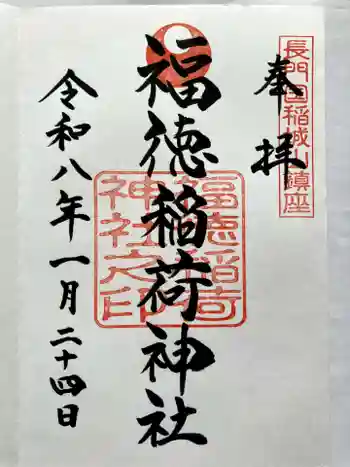 奉拝
長門国稲城山鎮座
福徳稲荷神社
福徳稲荷神社之印
令和八年一月二十四日